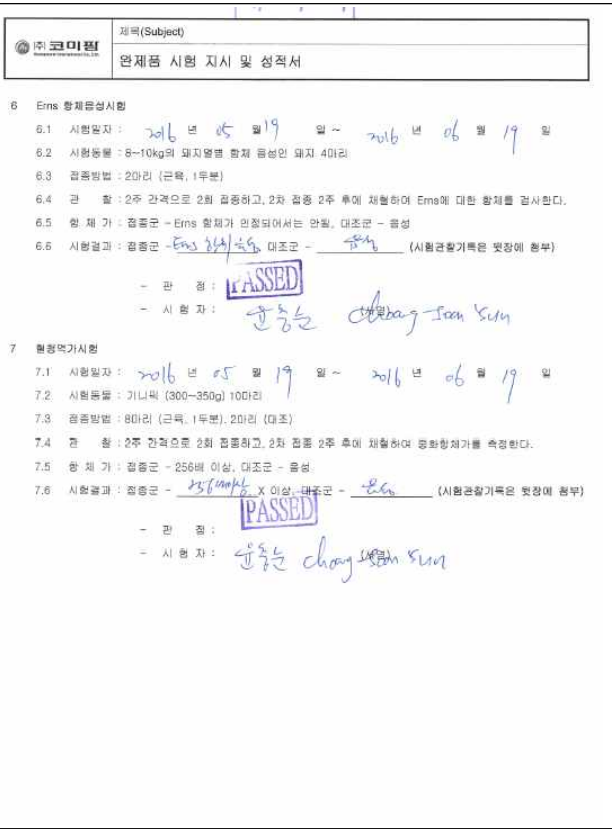 제목(Subject)
(주) 코미팜
완제품 시험 지시 및 성적서
6 Erns 항체음성시험
6.1 시험일자 : 2016 년 05 월 19 일 ~ 2016 년 06 월 19 일
6.2 시험동물 : 8~10kg의 돼지열병 항체 음성인 돼지 4마리
6.3 접종방법 : 2마리 (근육, 1두분)
6.4 관 찰 : 2주 간격으로 2회 접종하고, 2차 접종 2주 후에 채혈하여 Erns에 대한 항체를 검사한다.
6.5 항 체 가 : 접종군 - Erns 항체가 인정되어서는 안됨, 대조군 - 음성
6.6 시험결과 : 접종군 - Erns 항체 음성, 대조군 - 음성 (시험관찰기록은 뒷장에 첨부)
- 판 정 : PASSED
- 시 험 자 : 윤충순 Choong-Soon Yun
7 혈청역가시험
7.1 시험일자 : 2016 년 05 월 19 일 ~ 2016 년 06 월 19 일
7.2 시험동물 : 기니픽 (300~350g) 10마리
7.3 접종방법 : 8마리 (근육, 1두분), 2마리 (대조)
7.4 관 찰 : 2주 간격으로 2회 접종하고, 2차 접종 2주 후에 채혈하여 중화항체가를 측정한다.
7.5 항 체 가 : 접종군 - 256배 이상, 대조군 - 음성
7.6 시험결과 : 접종군 - 256배이상 X 이상, 대조군 - 음성 (시험관찰기록은 뒷장에 첨부)
- 판 정 : PASSED
- 시 험 자 : 윤충순 Choong-Soon Yun